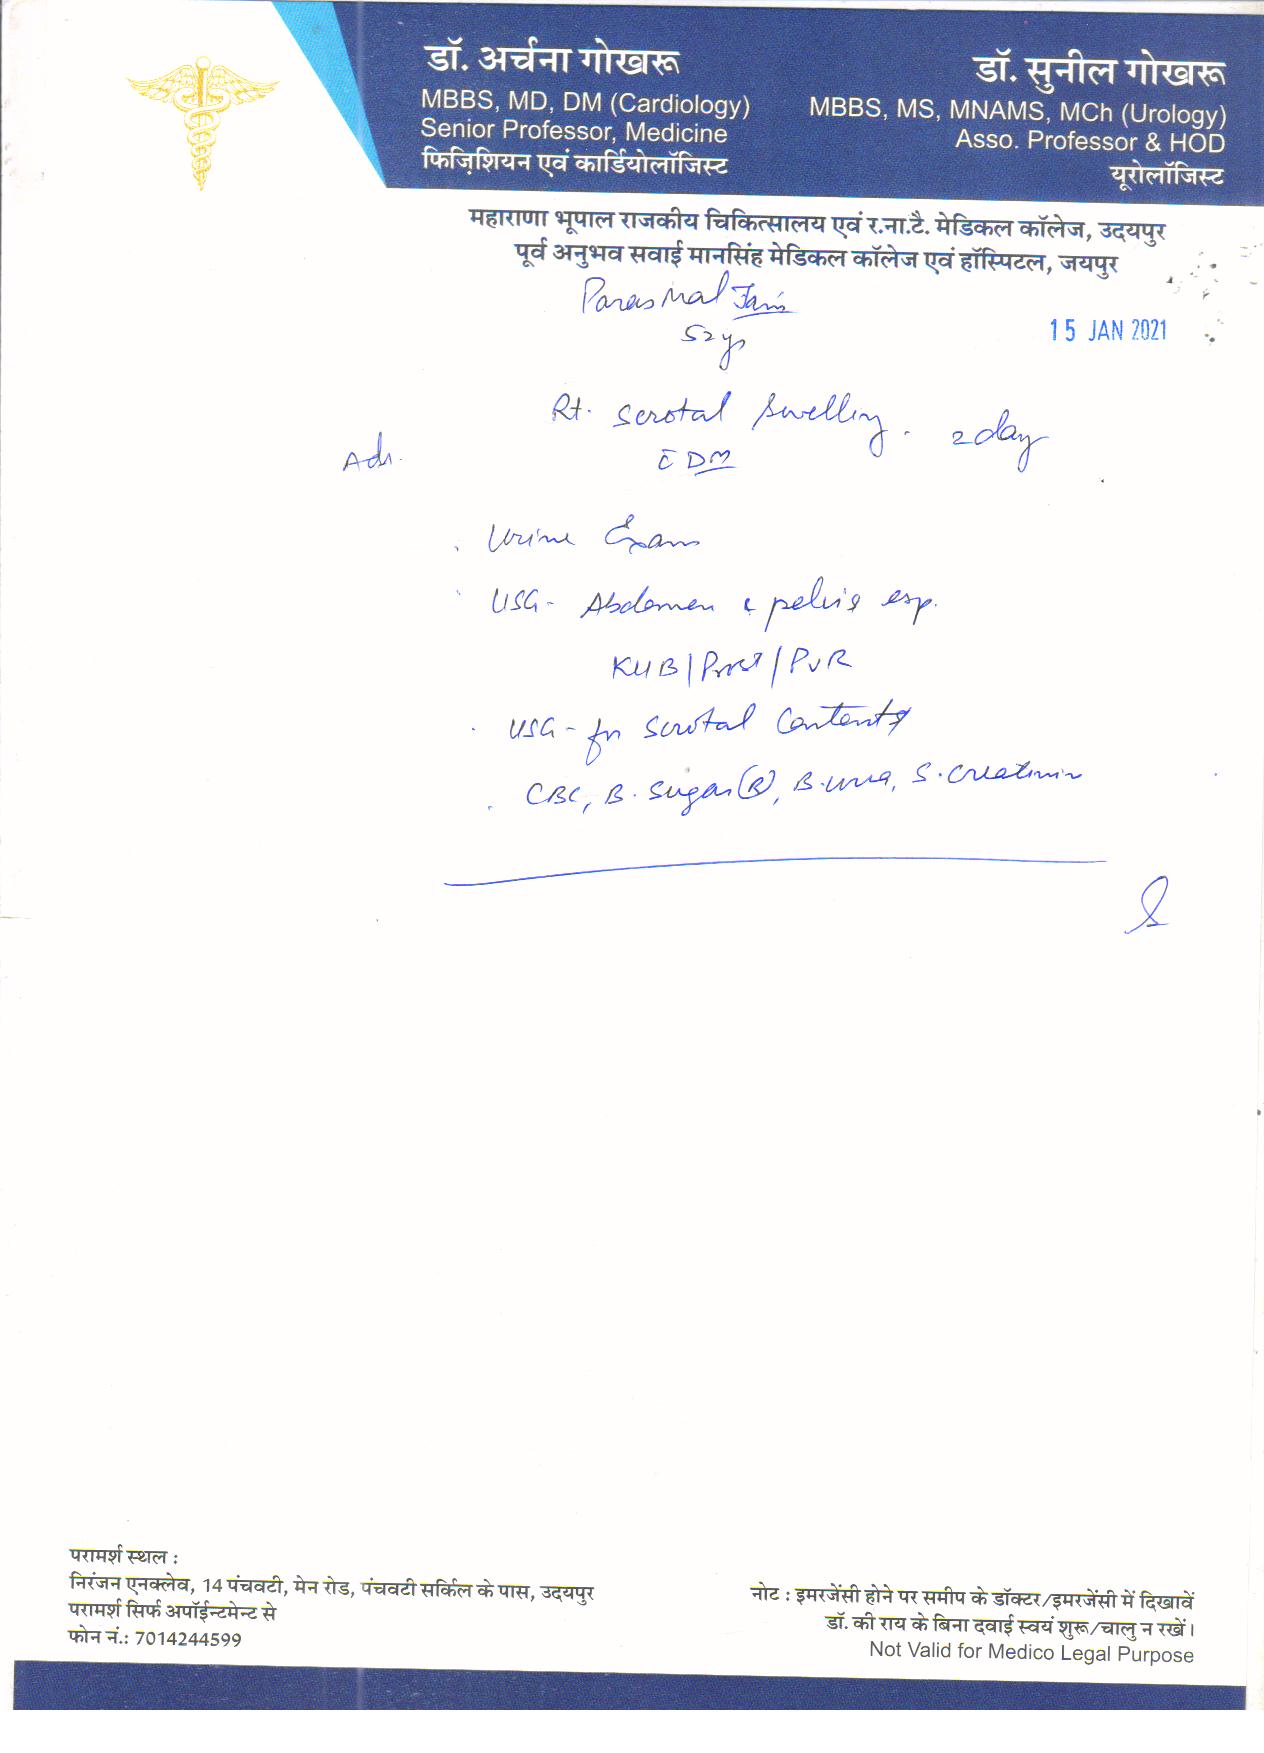 डॉ. अर्चना गोखरू
MBBS, MD, DM (Cardiology)
Senior Professor, Medicine
फिज़िशियन एवं कार्डियोलॉजिस्ट
डॉ. सुनील गोखरू
MBBS, MS, MNAMS, MCh (Urology)
Asso. Professor & HOD
यूरोलॉजिस्ट
महाराणा भूपाल राजकीय चिकित्सालय एवं र.ना.टै. मेडिकल कॉलेज, उदयपुर
पूर्व अनुभव सवाई मानसिंह मेडिकल कॉलेज एवं हॉस्पिटल, जयपुर
Paras Mal Jain
52 ys
15 JAN 2021
Rt. Scrotal Swelling. 2 day
c̄ DM
Urine Exam
USG - Abdomen & pelvis esp.
KUB/Prost/PVR
USG - for Scrotal Contents
CBC, B. Sugar (R), B. urea, S. Creatinin
परामर्श स्थल :
निरंजन एनक्लेव, 14 पंचवटी, मेन रोड, पंचवटी सर्किल के पास, उदयपुर
परामर्श सिर्फ अपॉईन्टमेन्ट से
फोन नं.: 7014244599
नोट : इमरजेंसी होने पर समीप के डॉक्टर/इमरजेंसी में दिखावें
डॉ. की राय के बिना दवाई स्वयं शुरू/चालु न रखें।
Not Valid for Medico Legal Purpose